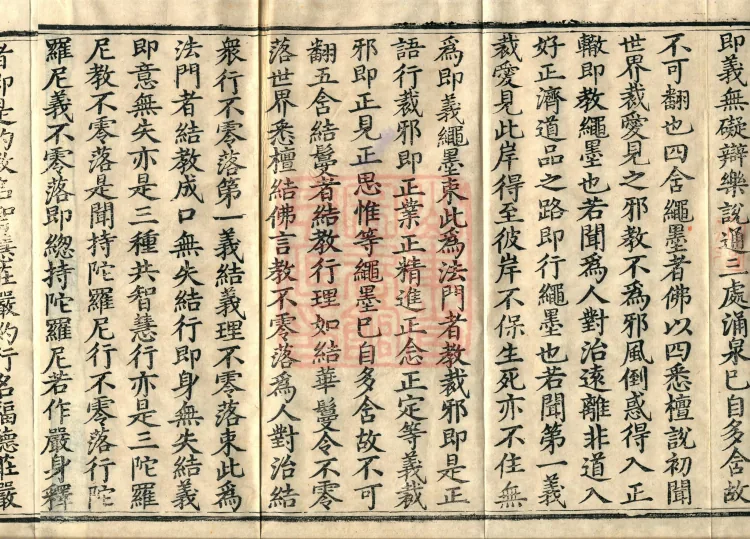 即義無礙辯樂說通三處涌泉已自多舍故
不可翻也四舍繩墨者佛以四悉檀說初聞
世界裁愛見之邪教不為邪風倒惑得入正
轍即教繩墨也若聞為人對治遠離非道入
好正濟道品之路即行繩墨也若聞第一義
裁愛見此岸得至彼岸不保生死亦不住無
為即義繩墨束此為法門者教裁邪即是正
語行裁邪即正業正精進正念正定等義裁
邪即正見正思惟等繩墨已自多舍故不可
翻五舍結鬘者結教行理如結華鬘令不零
落世界悉檀結佛言教不零落為人對治結
衆行不零落第一義結義理不零落束此為
法門者結教成口無失結行即身無失結義
即意無失亦是三種共智慧行亦是三陀羅
尼教不零落是聞持陀羅尼行不零落行陀
羅尼義不零落即緫持陀羅尼若作嚴身釋
者即是約教名智慧莊嚴約行名福德莊嚴